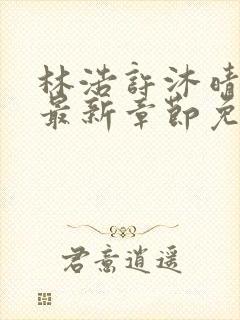 林浩许沐晴
最新章节免
君意逍遥